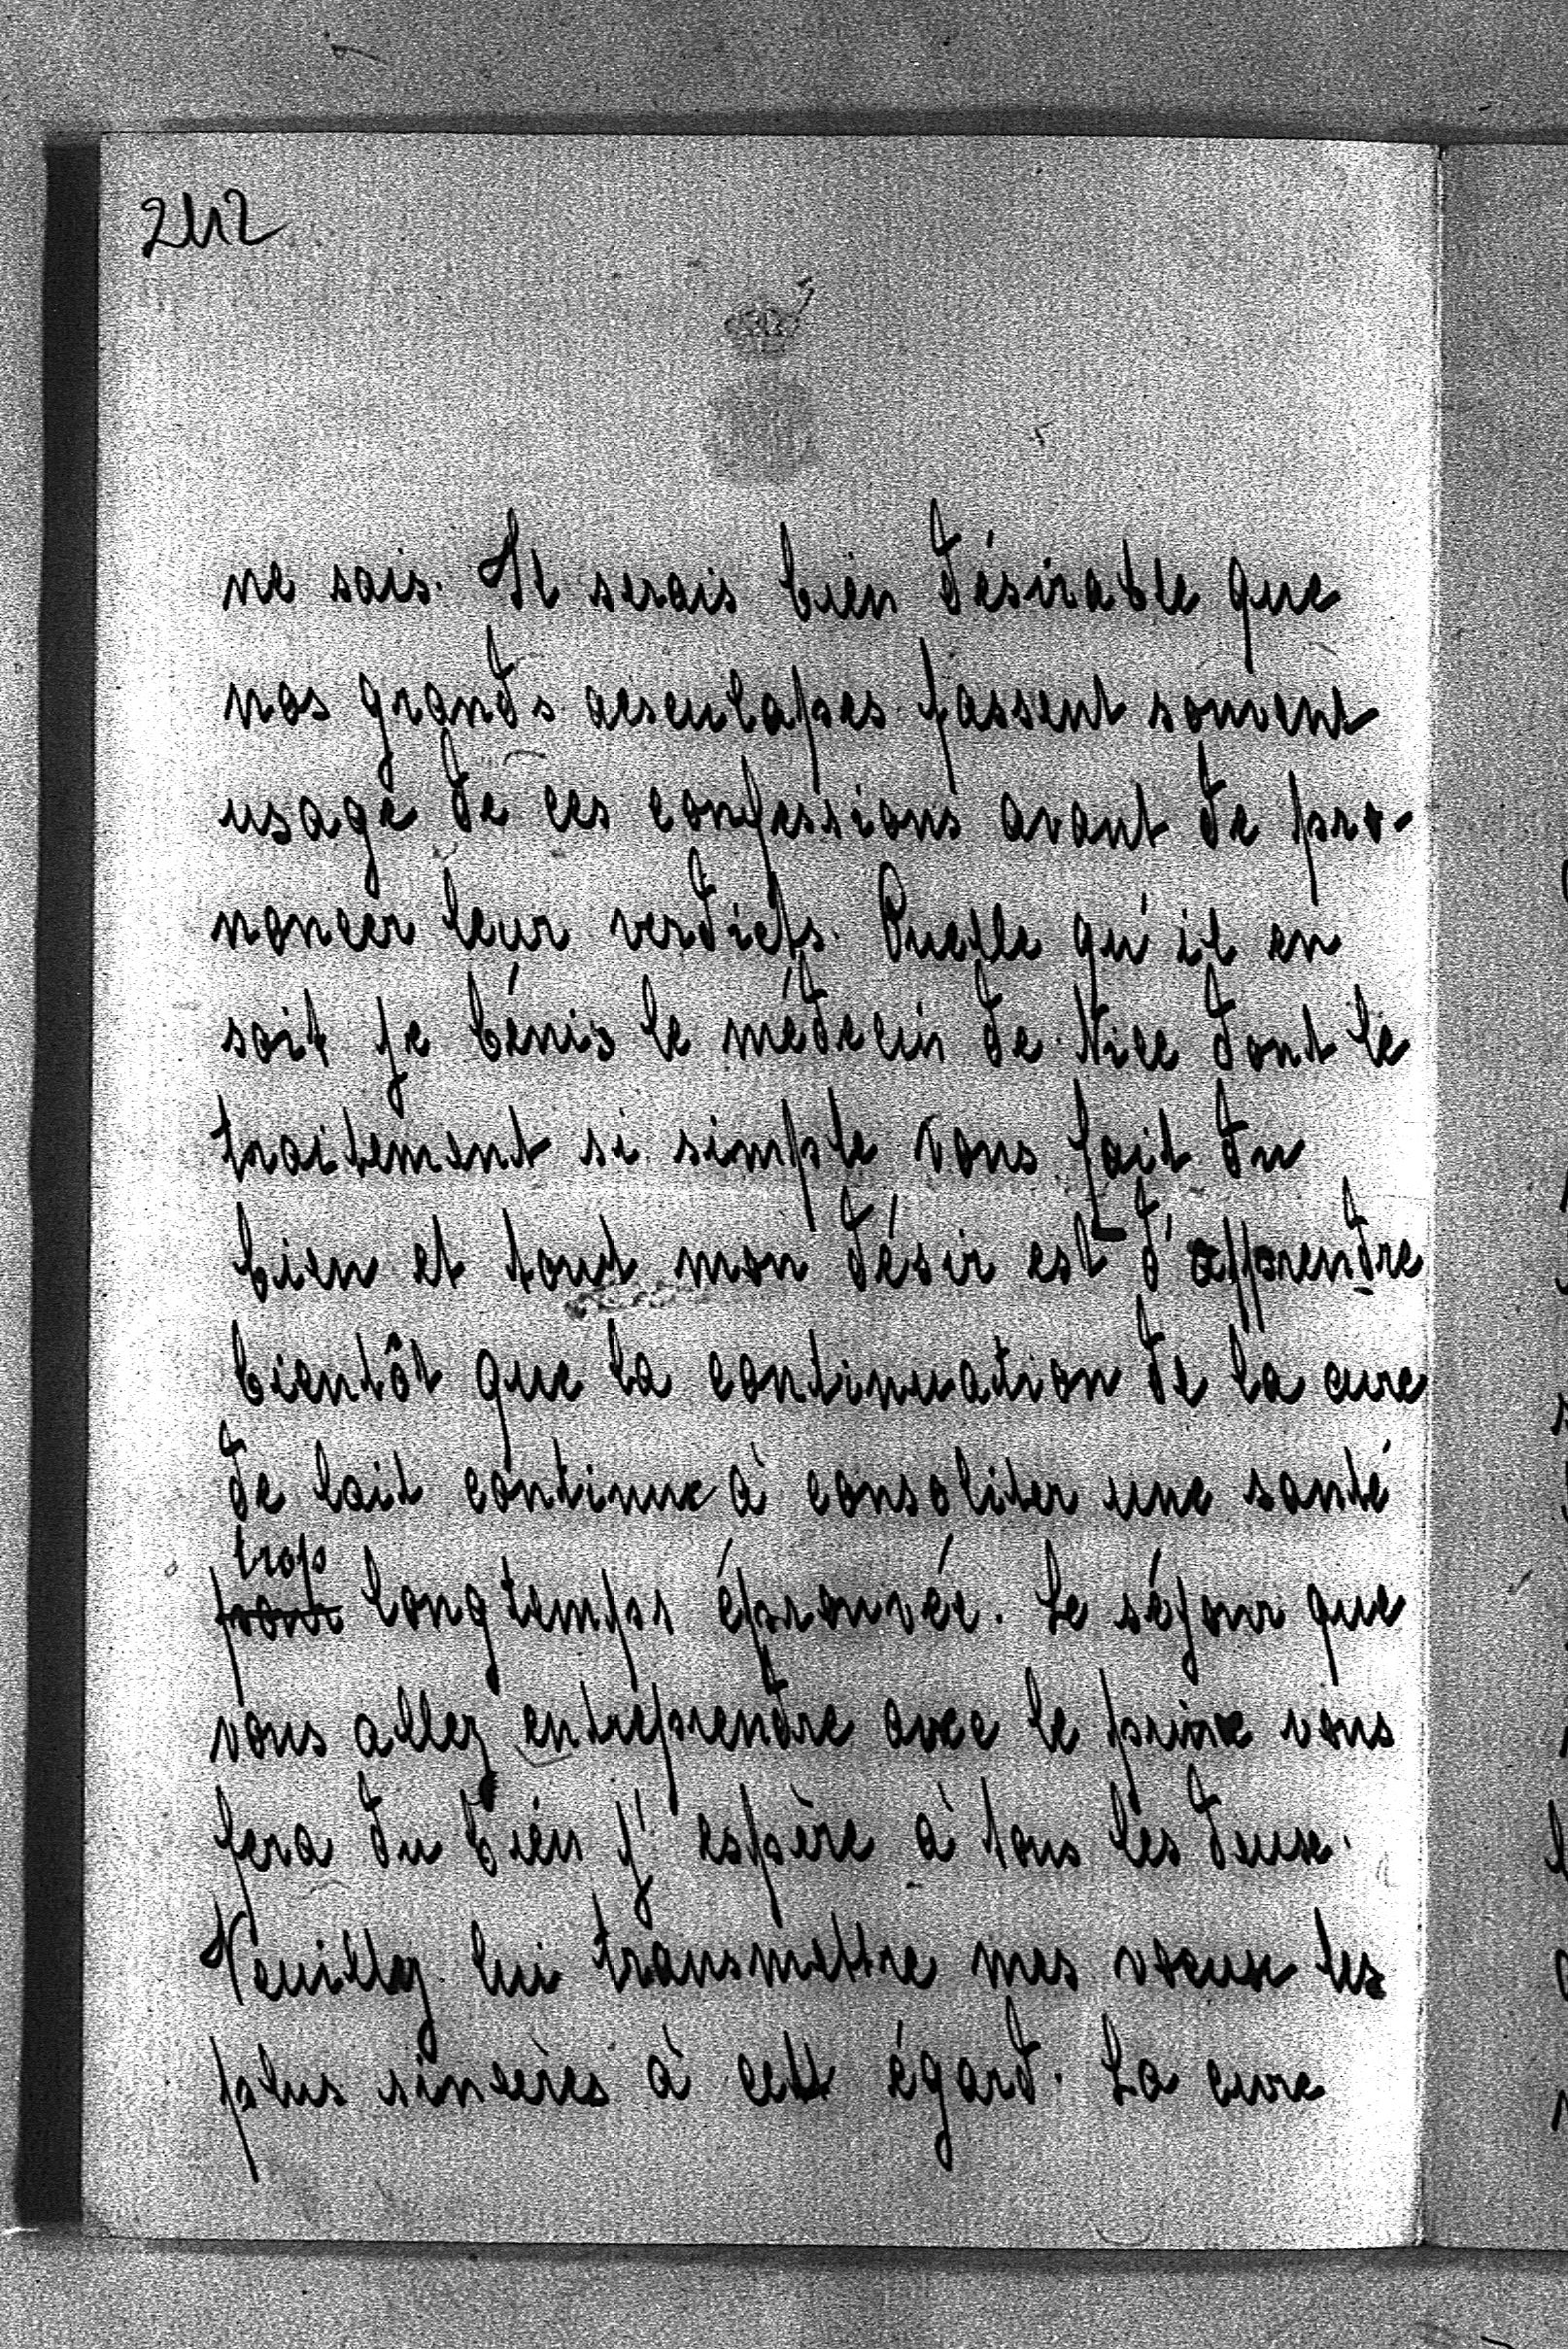 2412
ne sais. Il serais bien désirable que
nos grands aesculapes fassent souvent
usage de ces confessions avant de pro-
noncer leur verdicts. Quelle qu'il en
soit je bénis le médecin de Nice dont le
traitement si simple vous fait du
bien et tout mon désir est d'apprendre
bientôt que la continuation de la cure
de lait continue à consoliter une santé
trop
pour longtemps éprouvée. Le séjour que
vous allez entreprendre avec le prince vous
fera du bien j'espère à tous les deux.
Veuillez lui transmettre mes voeux les
plus sincères à cett égard. La cure